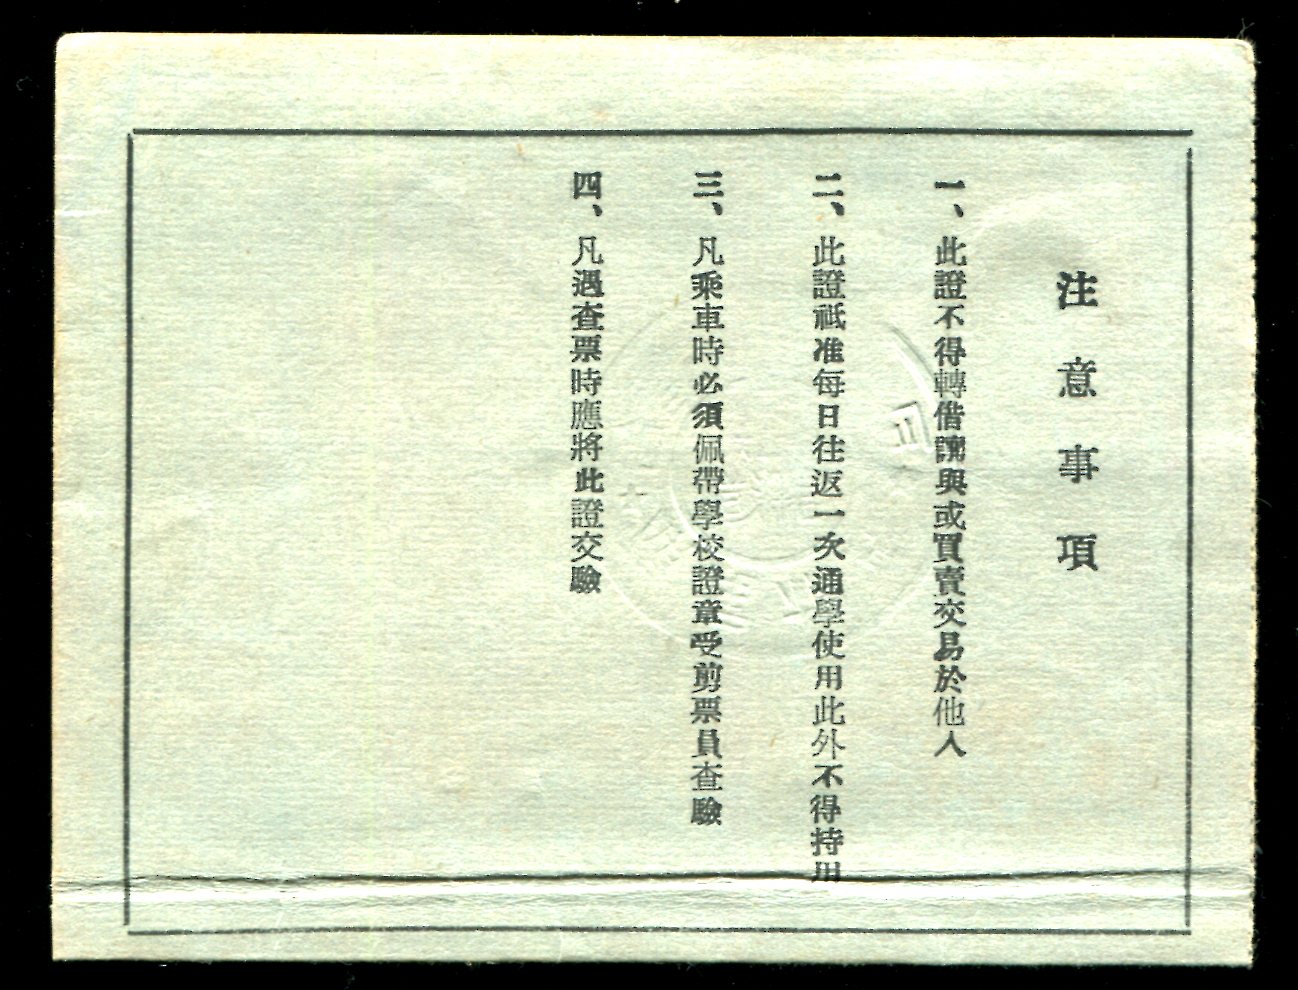 注意事項
一、此證不得轉借讓與或買賣交易於他人
二、此證祗准每日往返一次通學使用此外不得持用
三、凡乘車時必須佩帶學校證章受剪票員查驗
四、凡遇查票時應將此證交驗